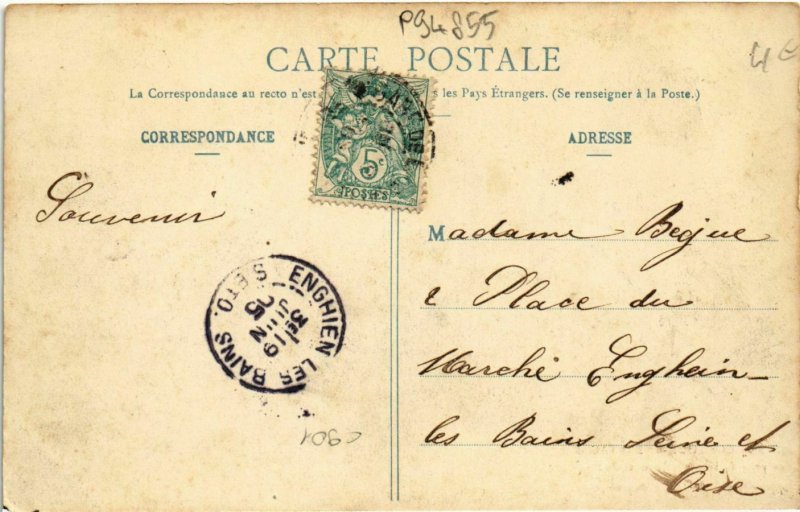 P94855
4€
CARTE POSTALE
La Correspondance au recto n'est les Pays Étrangers. (Se renseigner à la Poste.)
CORRESPONDANCE
ADRESSE
5c
POSTES
Souvenir
Madame Begue
2 Place du
Marché Enghein-
les Bains Seine et
Oise
ENGHIEN LES BAINS S ET O.
3E 19
JUIN
05
C901